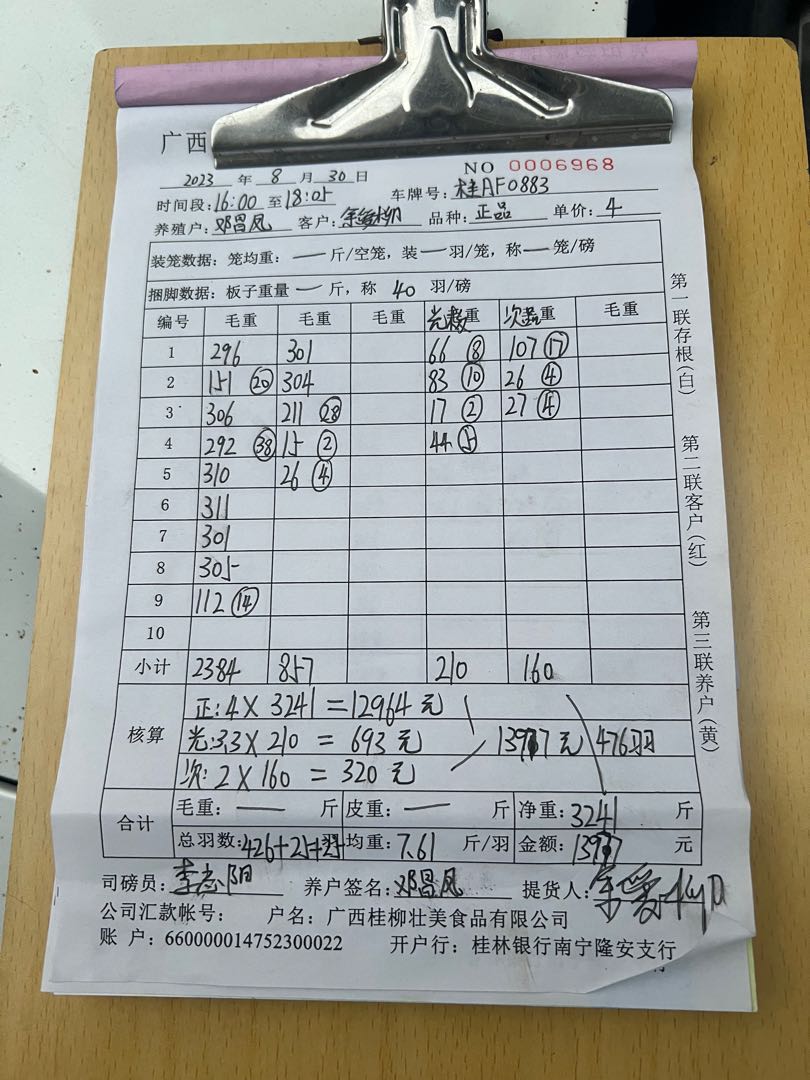 广西
NO 0006968
2023 年 8 月 30 日
时间段:16:00 至 18:05 车牌号: 桂AF0883
养殖户: 邓昌凤 客户: 品种: 正品 单价: 4
装笼数据: 笼均重: — 斤/空笼, 装 — 羽/笼, 称 — 笼/磅
捆脚数据: 板子重量 — 斤, 称 40 羽/磅
编号 毛重 毛重 毛重 重 次 重 毛重
1 296 301 66 ⑧ 107 ⑰
2 151 ⑳ 304 83 ⑩ 26 ④
3 306 211 ㉘ 17 ② 27 ④
4 292 ㊳ 15 ② 44 ⑤
5 310 26 ④
6 311
7 301
8 305
9 112 ⑭
10
小计 2384 857 210 160
核算
正: 4 × 3241 = 12964 元
光: 3.3 × 210 = 693 元 13977 元 476羽
次: 2 × 160 = 320 元
合计
毛重: — 斤 皮重: — 斤 净重: 3241 斤
总羽数: 426+25+25 均重: 7.61 斤/羽 金额: 13977 元
司磅员: 李志阳 养户签名: 邓昌凤 提货人:
公司汇款帐号: 户名: 广西桂柳壮美食品有限公司
账 户: 660000014752300022 开户行: 桂林银行南宁隆安支行
第一联存根(白)
第二联客户(红)
第三联养户(黄)